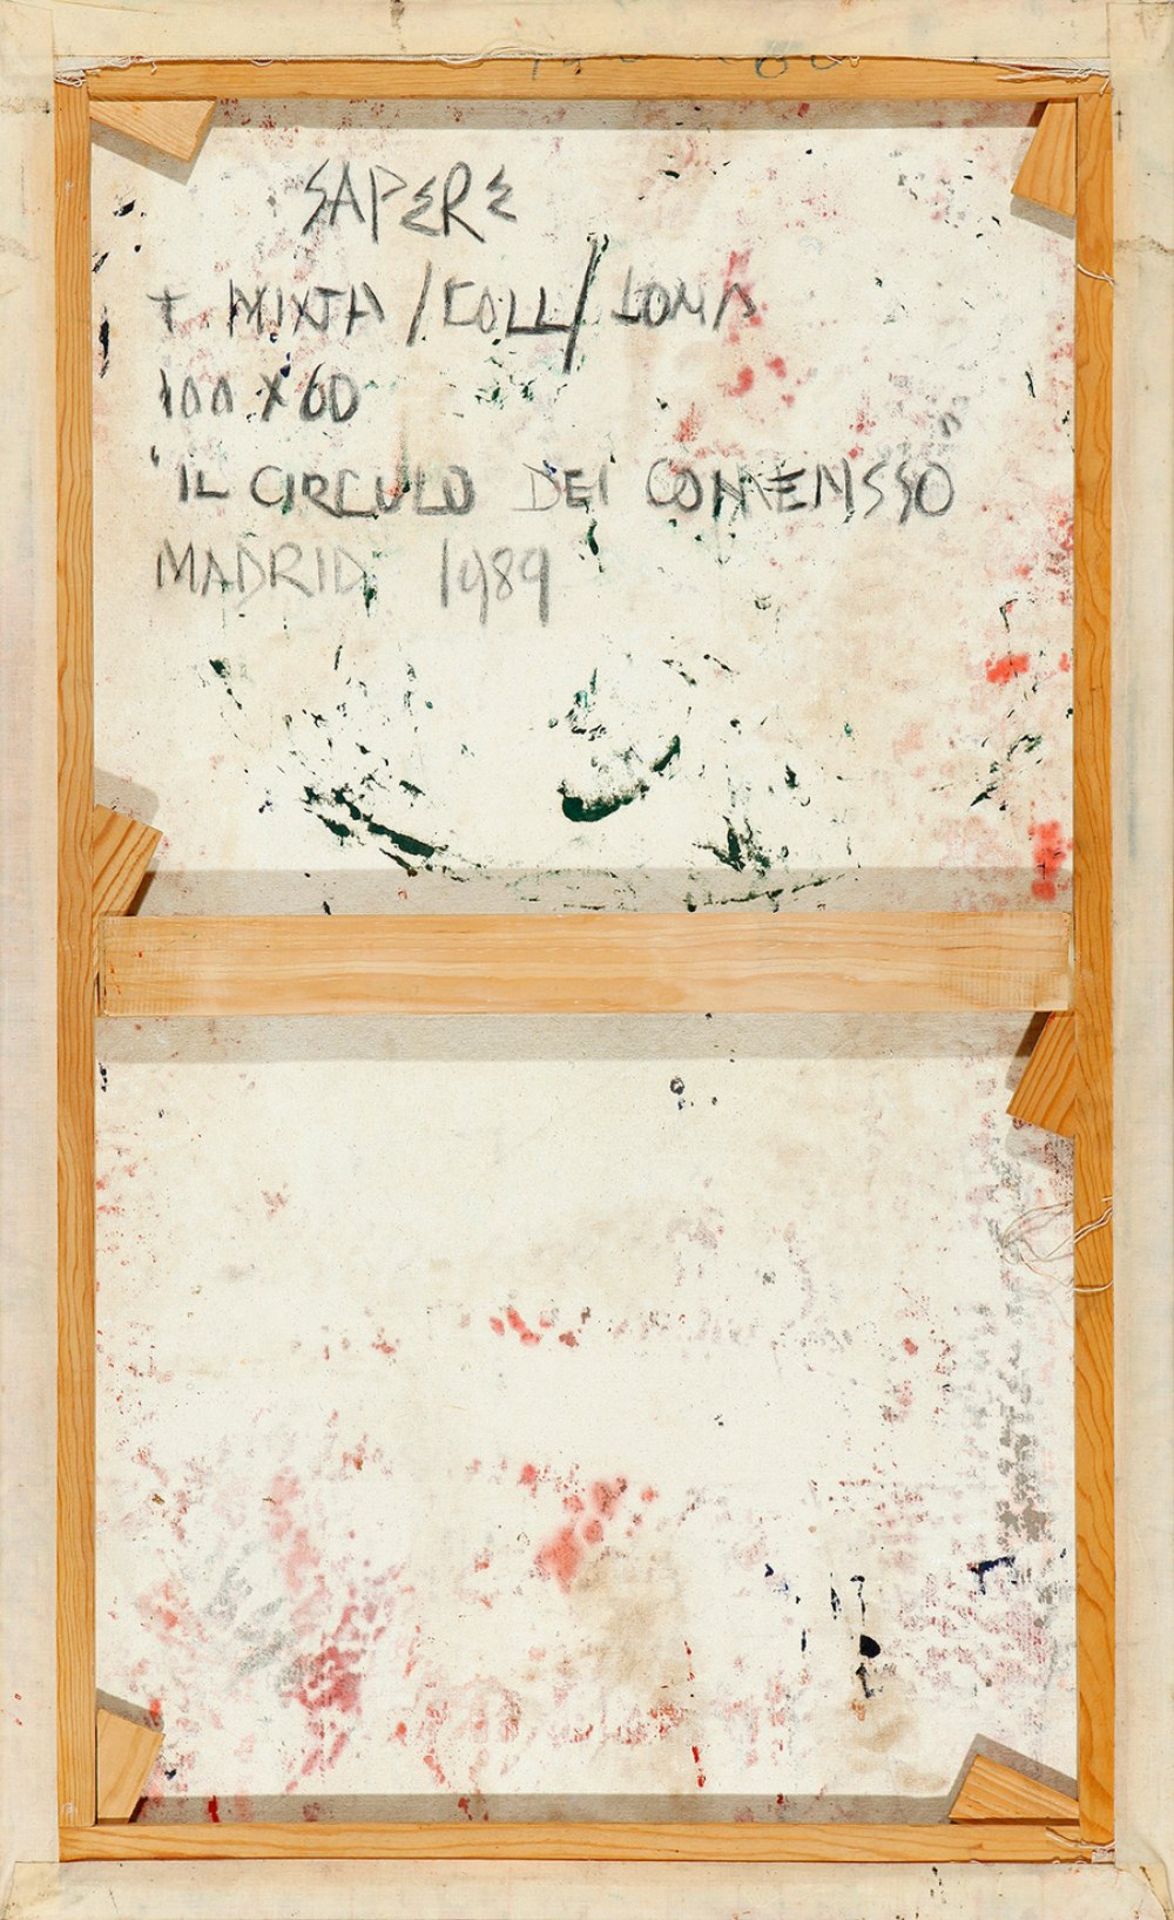 SAPERE
T. MIXTA / COLL / LONA
100 X 60
"IL CIRCULO DEI COMENSSO"
MADRID 1989